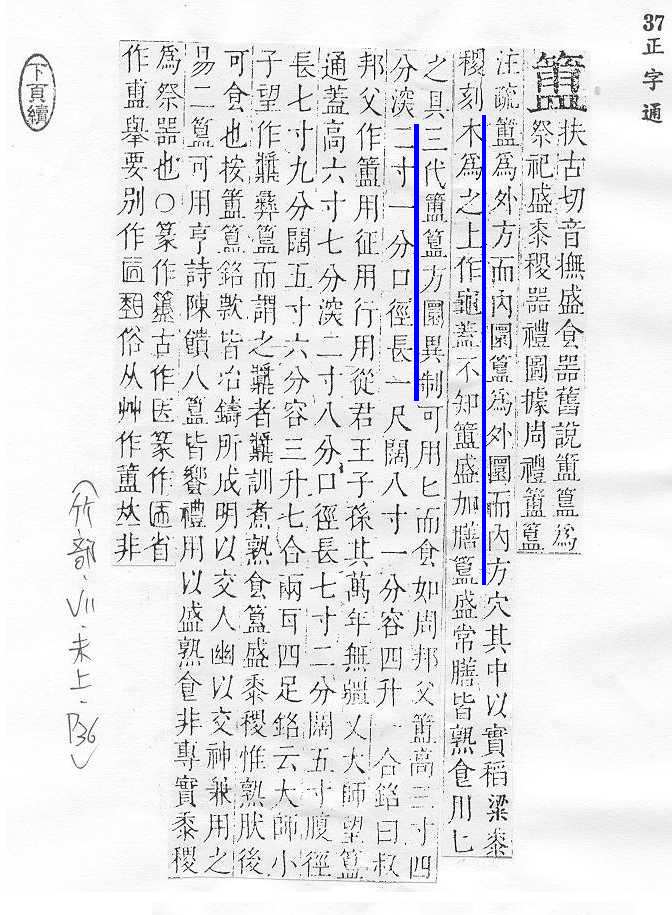 37正字通
簠
扶古切音撫盛食器舊說簠簋爲
祭祀盛黍稷器禮圖據周禮簠簋
注疏簠爲外方而內圜簋爲外圜而內方穴其中以實稻粱黍
稷刻木爲之上作龜蓋不知簠盛加膳簋盛常膳皆熟食用匕
之具三代簠簋方圜異制可用匕而食如周邦父簠高三寸四
分深二寸一分口徑長一尺闊八寸一分容四升一合銘曰叔
邦父作簠用征用行用從君王子孫其萬年無疆又大師望簋
通蓋高六寸七分深二寸八分口徑長七寸二分闊五寸腹徑
長七寸九分闊五寸六分容三升七合兩耳四足銘云大師小
子望作䵼彝簋而謂之䵼者䵼訓煮熟食簋盛黍稷惟熟肰後
可食也按簠簋銘款皆冶鑄所成明以交人幽以交神兼用之
易二簋可用亨詩陳饋八簋皆饗禮用以盛熟食非專實黍稷
爲祭器也○篆作簠古作匧篆作省
作舉要別作俗从艸作非
下頁續
(竹部·VII·未上·P36)